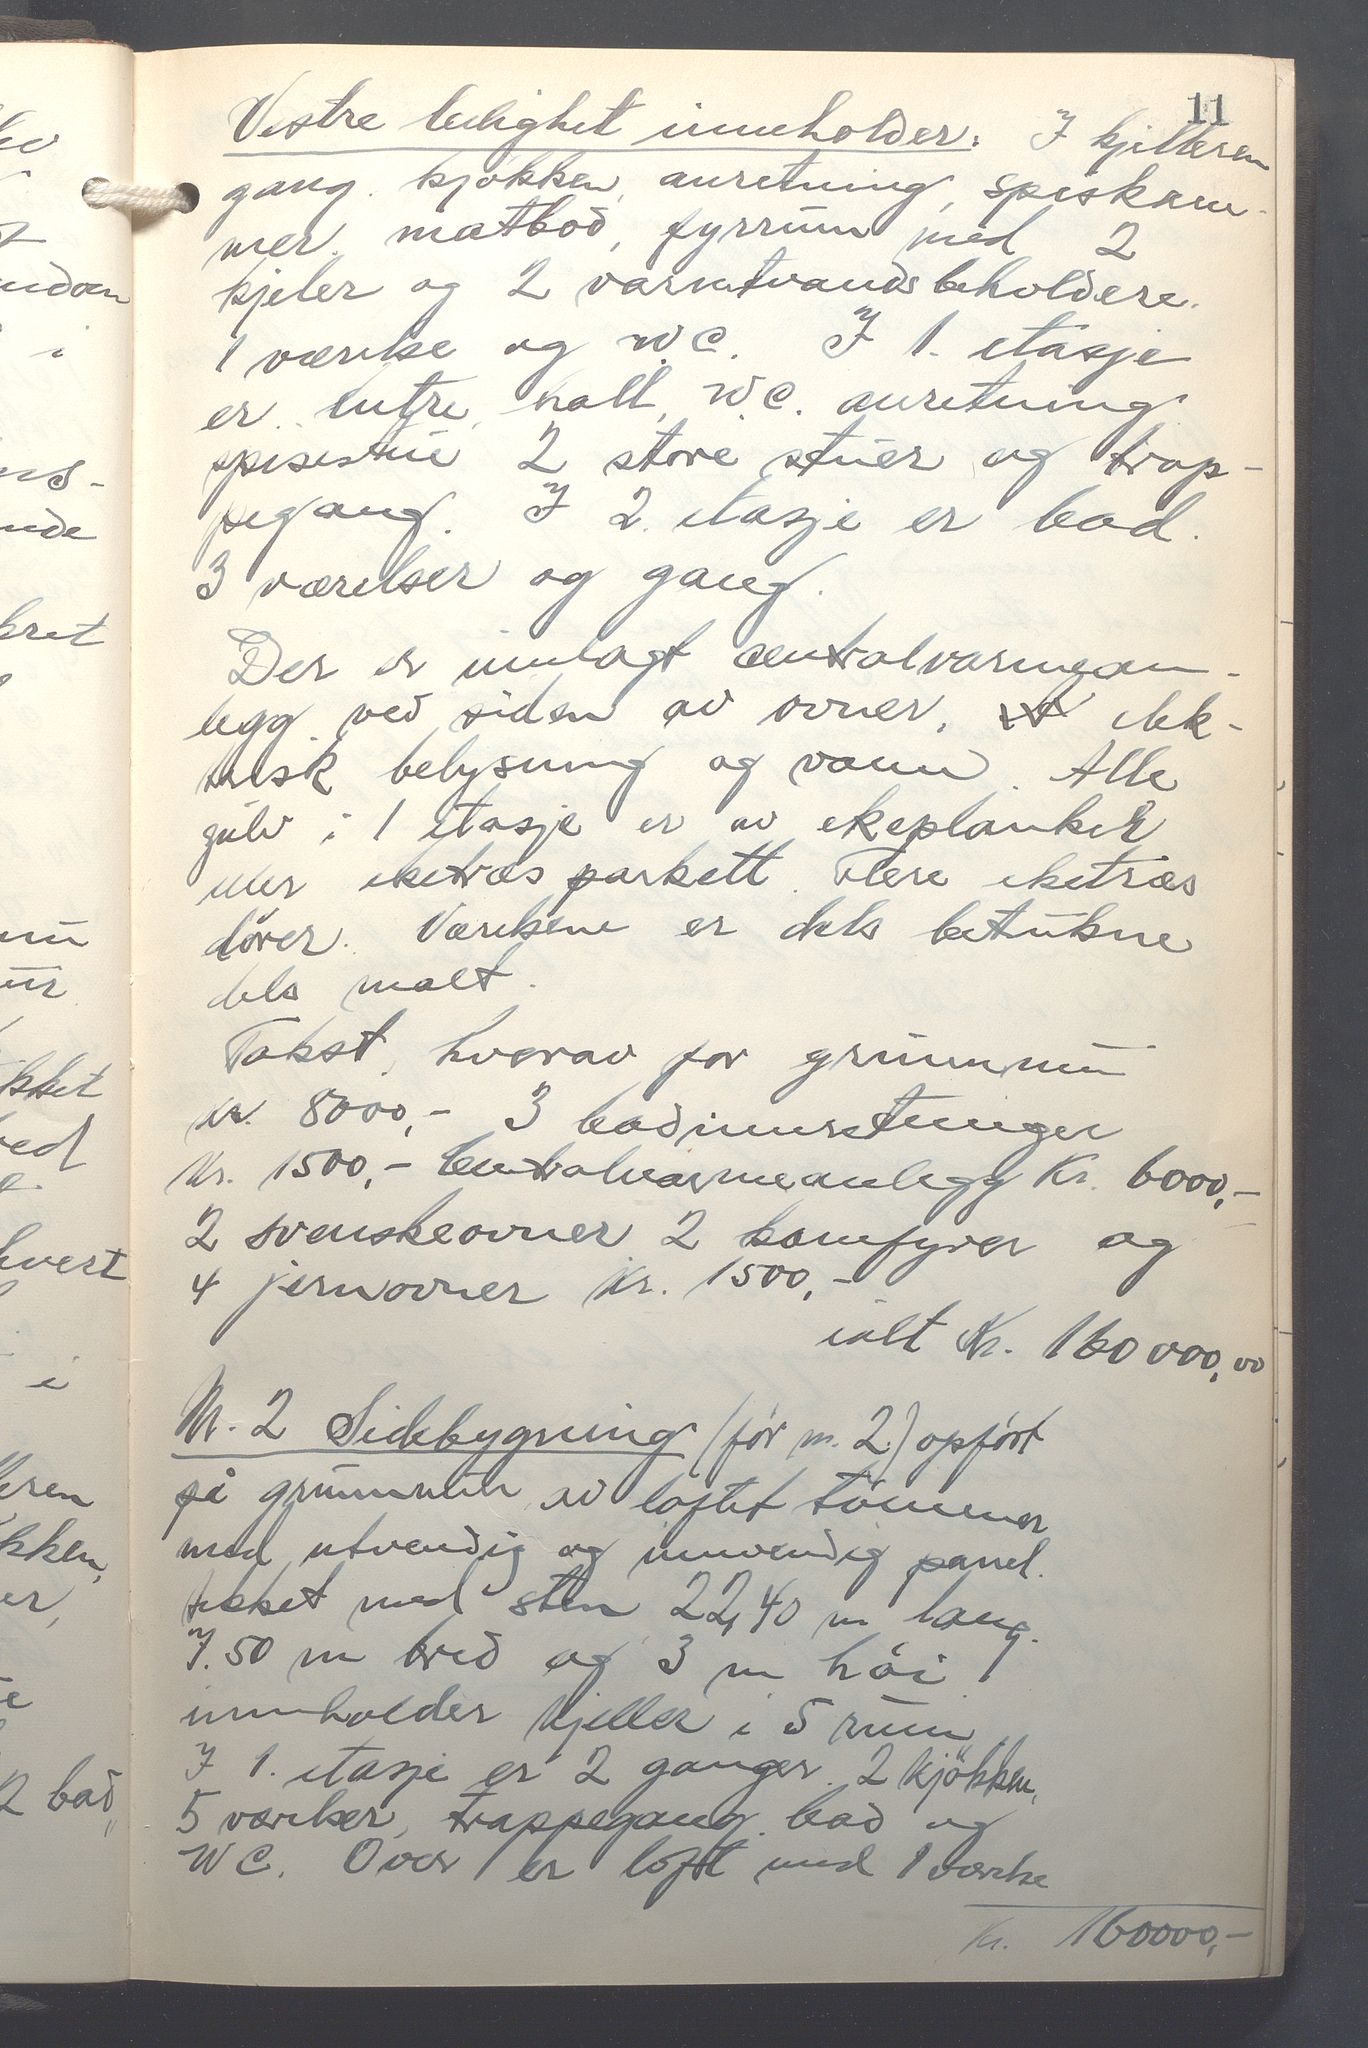 11
Vestre leilighet inneholder: I kjelleren
gang, kjøkken, anretning, spiskam-
mer, matbod, fyrrum med 2
kjeler og 2 varmtvandsbeholdere.
1 værelse og W.C. I 1. etasje
er entre, hall, W.C. anretning
spisestue 2 store stuer og trap-
pegang. I 2. etasje er bad.
3 værelser og gang.
Der er innlagt centralvarmean-
legg ved siden av ovner, elek-
trisk belysning og vann. Alle
gulv i 1 etasje er av ekeplanker
eller eketræs parkett. Flere eketræs
dører. Værelsene er dels betrukne
dels malt.
Takst, hvorav for grunnmur
kr. 8000,- 3 badinnretninger
Kr. 1500,- Centralvarmeanlegg Kr. 6000,-
2 svenskeovner 2 komfyrer og
4 jernovner Kr. 1500,-
ialt Kr. 160 000,00
Nr. 2 Sidebygning (før nr. 2) opført
på grunnmur av loftet tømmer
med utvendig og innvendig panel.
tekket med sten 22,40 m lang.
7.50 m bred og 3 m høi
innholder kjeller i 5 rum,
I 1. etasje er 2 ganger, 2 kjøkken,
5 værelser, trappegang, bad og
WC. Over er loft med 1 værelse
Kr. 160000,-